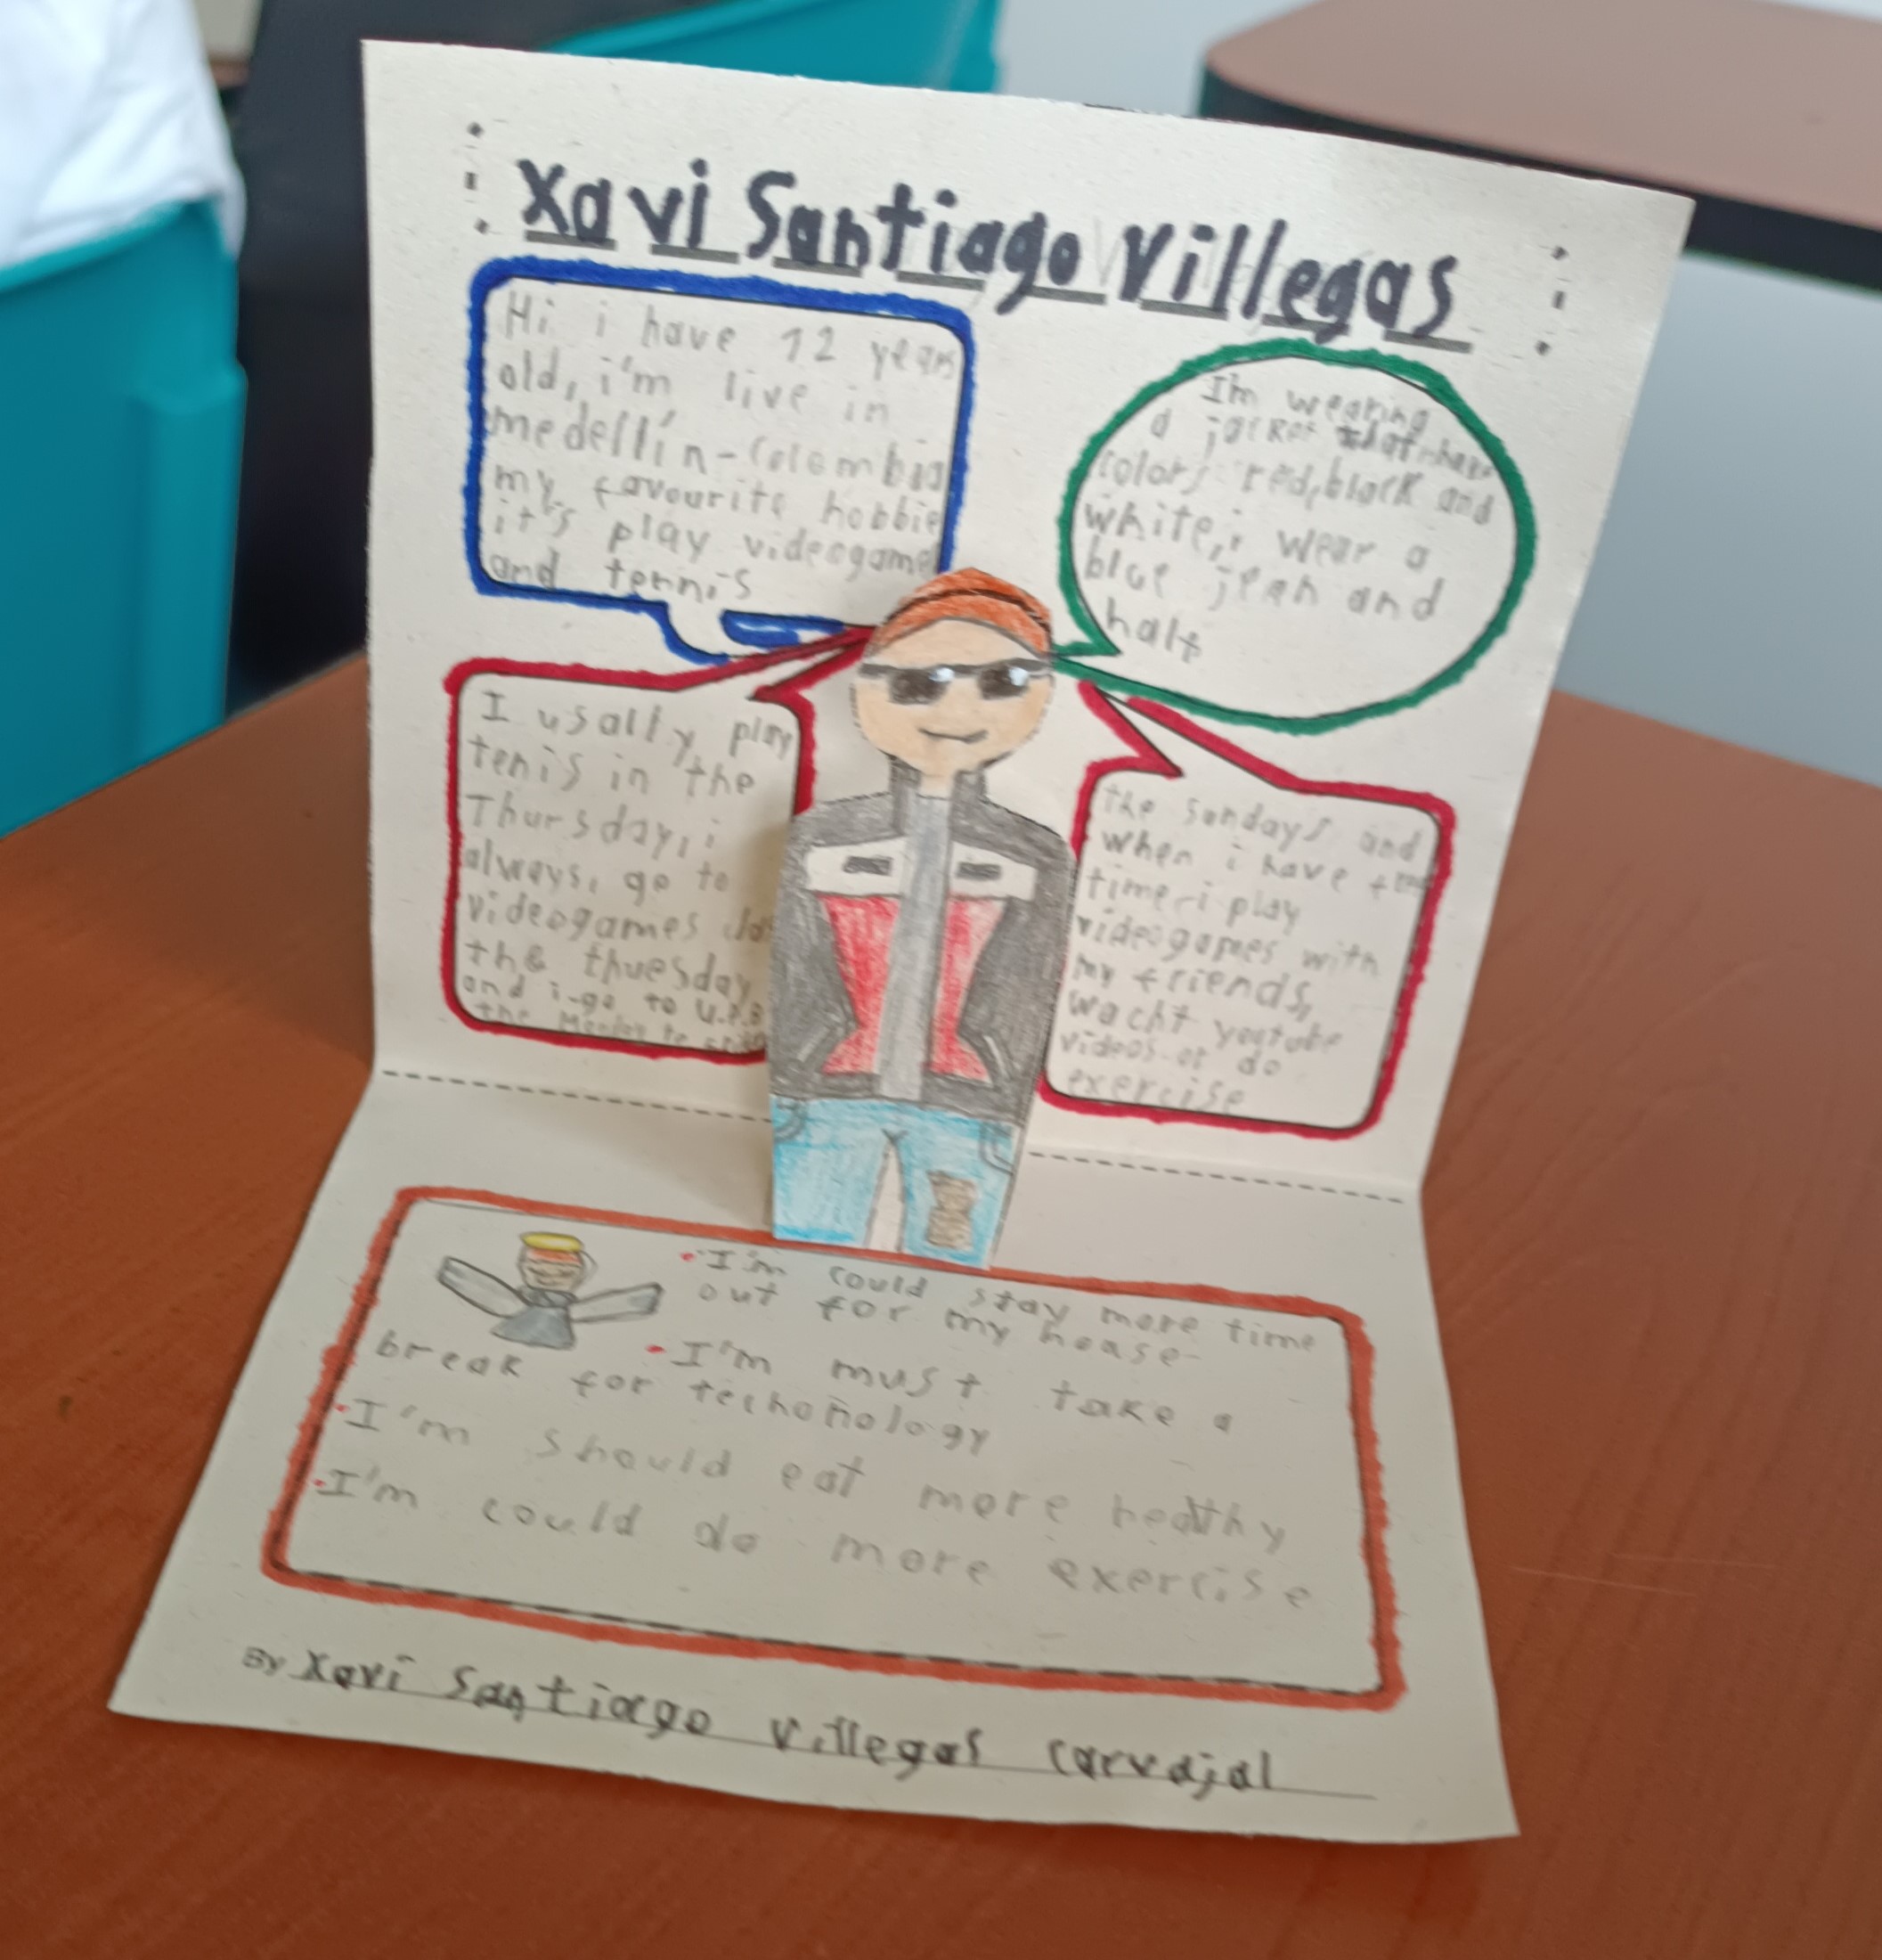 Xavi Santiago Villegas
Hi i have 12 years
old, i'm live in
medellín-Colombia
my favourite hobbie
it's play videogame
and tennis
I'm wearing
a jacket that have
colors red, black and
white, i wear a
blue jean and
hat
I usally play
tenis in the
Thursday, i
always, go to
videogames
the thuesday
and i go to U.P.B
the Monday to
the sundays and
when i have
time i play
videogames with
my friends,
wacht youtube
videos or do
exercise
• I'm could stay more time
out for my house
• I'm must take a
break for techonology
• I'm should eat more healthy
• I'm could do more exercise
By Xavi Santiago Villegas Carvajal